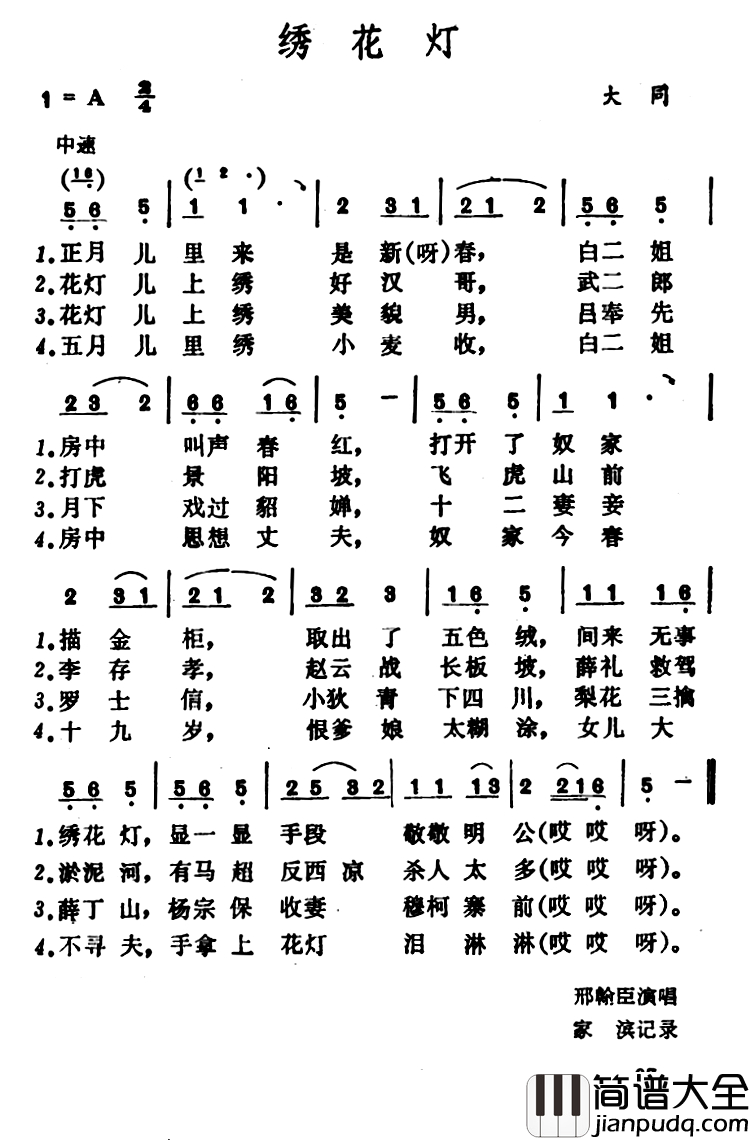 绣花灯
1=A 2/4 大同
中速
(16) (1 2 ·)
5 6 5 | 1 1 · | 2 3 1 | 2 1 2 | 5 6 5 |
1.正月儿里来是新(呀)春,白二姐
2.花灯儿上绣好汉哥,武二郎
3.花灯儿上绣美貌男,吕奉先
4.五月儿里绣小麦收,白二姐
2 3 2 | 6 6 1 6 | 5 － | 5 6 5 | 1 1 · |
1.房中叫声春红,打开了奴家
2.打虎景阳坡,飞虎山前
3.月下戏过貂婵,十二妻妾
4.房中思想丈夫,奴家今春
2 3 1 | 2 1 2 | 3 2 3 | 1 6 5 | 1 1 1 6 |
1.描金柜,取出了五色绒,间来无事
2.李存孝,赵云战长板坡,薛礼救驾
3.罗士信,小狄青下四川,梨花三擒
4.十九岁,恨爹娘太糊涂,女儿大
5 6 5 | 5 6 5 | 2 5 3 2 | 1 1 1 3 | 2 2 1 6 | 5 － ‖
1.绣花灯,显一显手段敬敬明公(哎哎呀)。
2.淤泥河,有马超反西凉杀人太多(哎哎呀)。
3.薛丁山,杨宗保收妻穆柯寨前(哎哎呀)。
4.不寻夫,手拿上花灯泪淋淋(哎哎呀)。
邢翰臣演唱
家滨记录
简谱大全
jianpudq.com